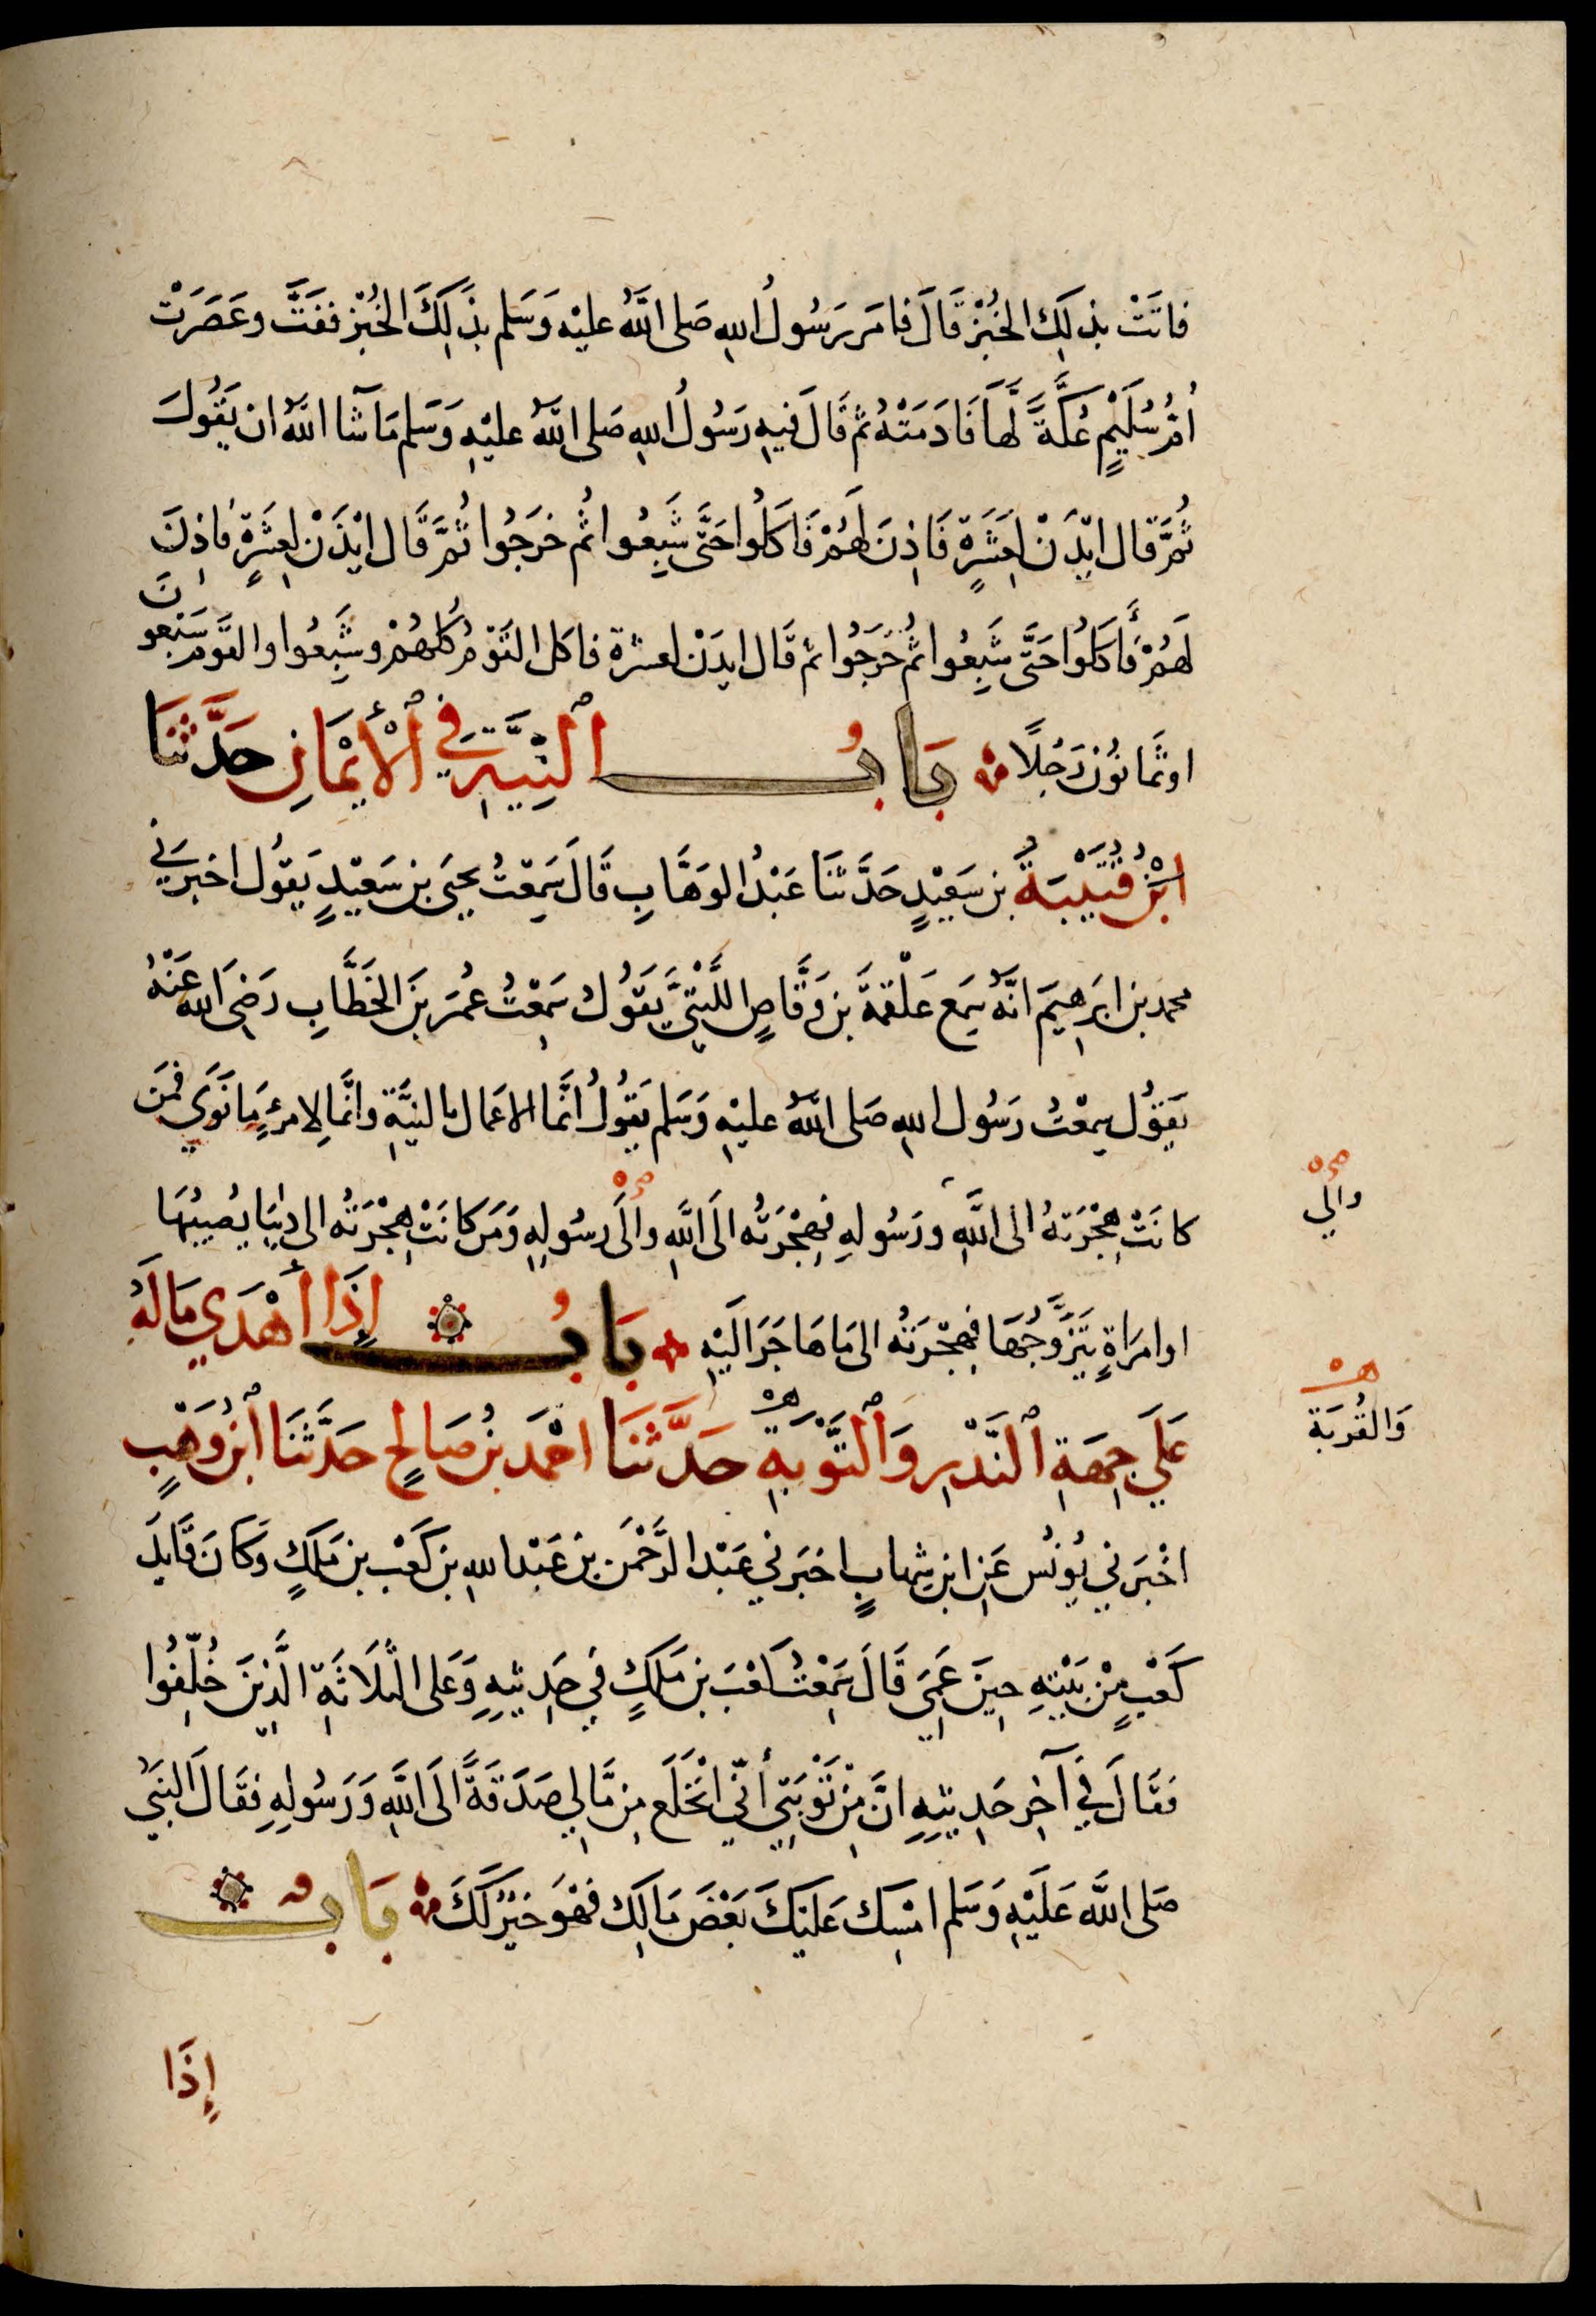 فاتَتْ بذلِكَ الخُبْزْ قَالَ فامَر رَسُولُ اللهِ صَلى اللَّهُ عليْه وَسَلم بذَلِكَ الخُبْز ففَتَّ وعَصَرَتْ
أُمُّ سُلَيْمٍ عُكَّةً لَّهَا فَادَمَتْهُ ثم قَالَ فيهِ رَسُولُ اللهِ صَلى اللَّهُ عليْهِ وَسَلم مَا شآ اللَّهُ ان يَقُولَ
ثُمَّ قال ايْذَنْ لِعَشَرَةٍ فَاذِنَ لَهُمْ فَاكَلُوا حَتَّى شَبِعُوا ثُم خرَجُوا ثُمَّ قَال ايْذَنْ لِعشَرةٍ فاذِنَ
لَهُمْ فَأكَلوُا حَتَّى شَبِعُوا ثُم خَرَجُوا ثم قَال ايذَنْ لعشرة فاكل القَوْمُ كلهُمْ وشَبِعُوا والقَوم سَبْعونَ
او ثَمَانُوْن رَجُلًا بَابُ النِّيَّةِ فِي ٱلْأَيْمَانِ حَدَّثَنَا
ابْنُ قُتَيْبَةُ بن سَعِيْدٍ حَدَّثنَا عَبْدُ الوَهَّابِ قَالَ سَمِعْتُ يحيَى بن سَعِيْدٍ يَقوُل اخبرَني
محمد بن ابرَهِيمَ انَّهُ سَمِع عَلْقمَةَ بن وَقَّاصٍ اللَّيْثيَّ يَقوُل سَمِعْتُ عُمَرَ بنَ الخَطَّابِ رَضِيَ الله عَنْهُ
يَقوُل سمعْتُ رَسُول اللهِ صَلى اللَّهُ عليْهِ وَسَلم يَقوُلُ انَّما الاعمَال بالنيَّةِ وانَّما لِامرئٍ مَا نَوَى فمَن
كانَتْ هِجْرَتهُ الى اللَّهِ ورَسُولهِ فهِجْرَتُه الَى اللَّهِ والَى رسُولِهِ وَمَن كانَتْ هِجْرَتُه الى دنيَا يُصيبُهَا
او امرَاةٍ يَتَزَوَّجُهَا فهِجْرَتُه الى مَا هَاجَرَ الَيْهِ بَابُ إِذَا أَهْدَي مَالَهُ
عَلَي جِهَةِ ٱلنَّذْرِ وَٱلتَّوْبَةِ حَدَّثَنَا احْمَد بنُ صَالحٍ حَدَّثَنَا ٱبْنُ وَهْبٍ
اخْبَرَني يُونُس عَنِ ابن شِهابٍ اخبَرَني عَبْد الرَّحْمٰن بن عَبْد الله بن كَعْب بن مَلكٍ وَكَانَ قَايِدَ
كَعْبٍ مِنْ بَنيْهِ حِينَ عَمِيَ قَالَ سَمِعْتُ كعْبَ بن مَلكٍ في حَدِيثِهِ وَعَلى الثلَاثَةِ الَّذِينَ خُلِّفُوا
فقَالَ في آخِرِ حَدِيثهِ انَّ مِنْ تَوْبَتِي أنّي انْخَلَع مِن مَّالِي صَدَقَةً الَى اللَّهِ وَرَسُولِهِ فقَالَ النبَيُّ
صَلى اللَّه عَلَيْهِ وَسَلم امْسِك عَليْكَ بَعْضَ مَالِكَ فهْوَ خيْرٌ لَكَ بَابُ
إِذَا
والَى
وَالقُرْبَة
صح